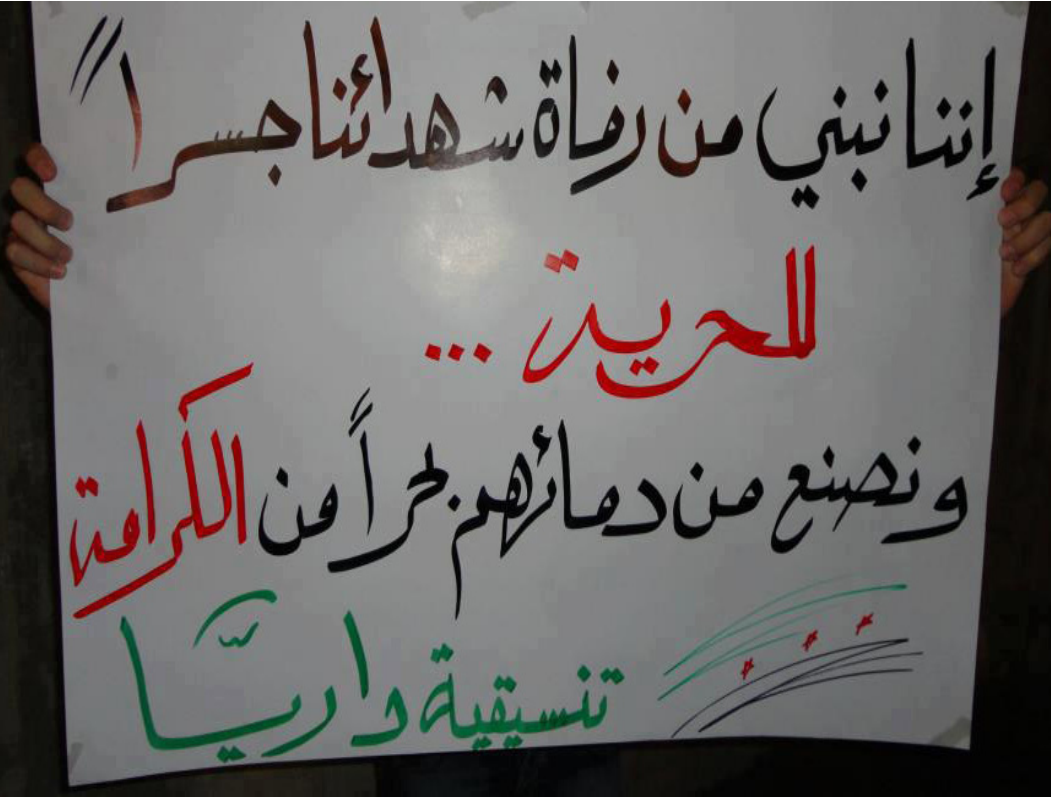 إننا نبني من رفاة شهدائنا جسراً
للحرية ...
ونصنع من دمائهم بحراً من الكرامة
تنسيقية داريّا